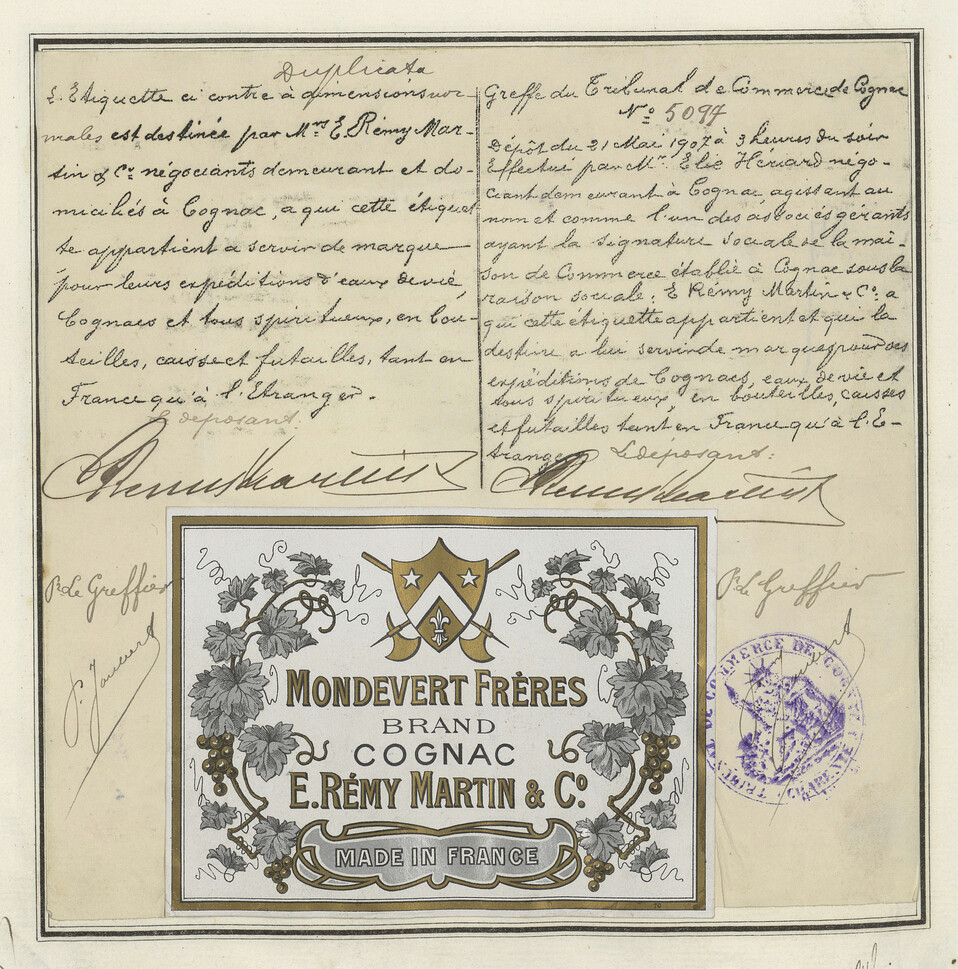 Duplicata
L'Etiquette ci contre à dimensions nor-
males est destinée par Mrs E. Rémy Mar-
tin & Cie négociants demeurant et do-
miciliés à Cognac, a qui cette étiquet
te appartient a servir de marque
pour leurs expéditions d'eaux de vie,
Cognacs et tous spiritueux, en bou-
teilles, caisses et futailles, tant en
France qu'à l'Etranger.
Le déposant:
Greffe du Tribunal de Commerce de Cognac
No 5097
Dépôt du 21 Mai 1907 à 3 heures du soir
Effectué par Mr. Elie Hériard négo-
ciant demeurant à Cognac, agissant au
nom et comme l'un des associés gérants
ayant la signature sociale de la mai-
son de Commerce établie à Cognac sous la
raison sociale: E Rémy Martin & Co. a
qui cette étiquette appartient et qui la
destine a lui servir de marques pour ses
expéditions de Cognacs, eaux de vie et
tous spiritueux en bouteilles, caisses
et futailles tant en France qu'à l'E-
tranger Le déposant:
E Remy Martin & Co
E Remy Martin & Co
Pr Le Greffier
Pr Le Greffier
MONDEVERT FRÈRES
BRAND
COGNAC
E. RÉMY MARTIN & Co.
MADE IN FRANCE
TRIBUNAL DE COMMERCE DE COGNAC
CHARENTE